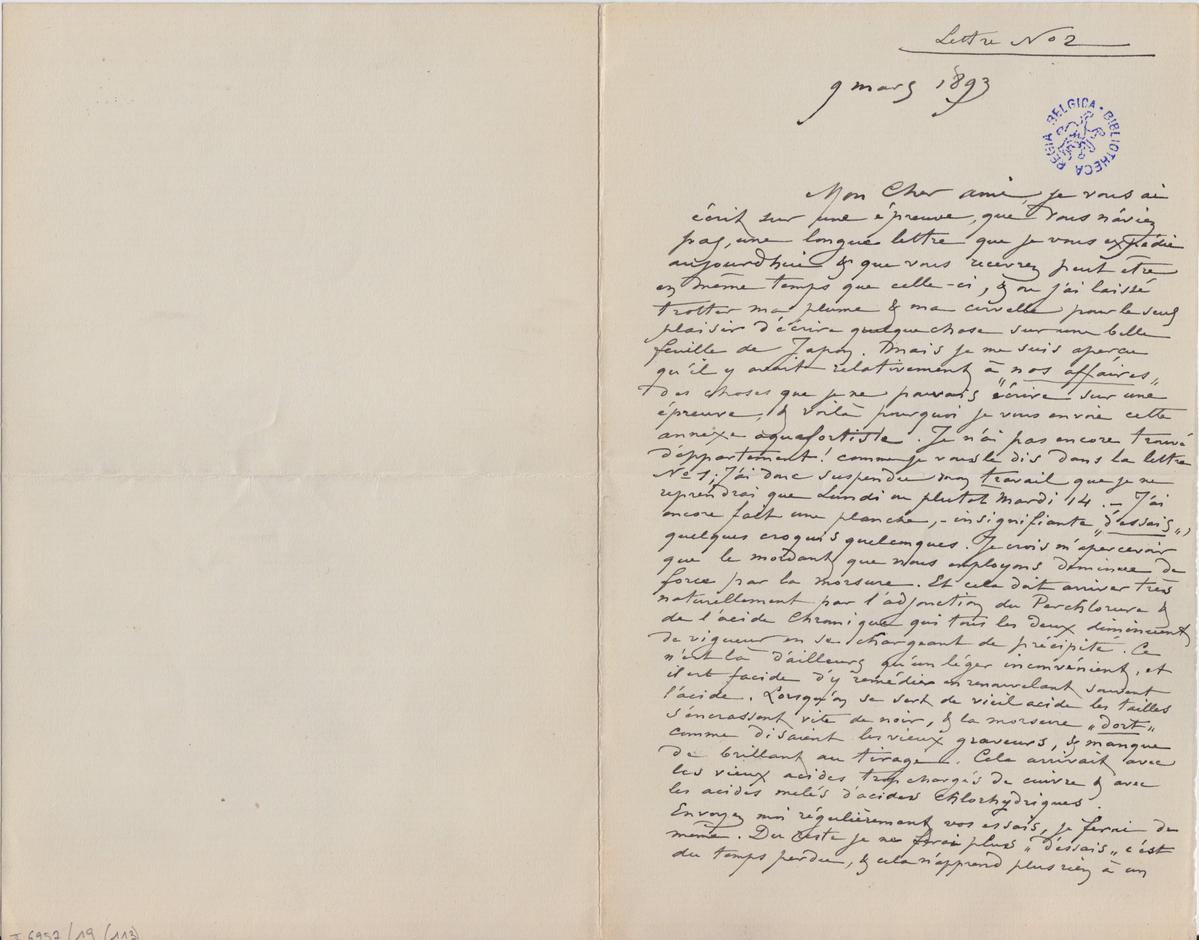 Lettre No 2
9 mars 1893
REGIA BELGICA • BIBLIOTHECA
Mon Cher ami, je vous ai
écrit sur une épreuve, que vous n'aviez
pas, une longue lettre que je vous expédie
aujourdhui & que vous recevrez peut être
en même temps que celle-ci, & ou j'ai laissé
trotter ma plume & ma cervelle pour le seul
plaisir d'écrire quelque chose sur une belle
feuille de Japon. Mais je me suis aperçu
qu'il y avait relativement à "nos affaires"
des choses que je ne pouvais écrire sur une
épreuve, & voilà pourquoi je vous envoie cette
annexe aquafortiste. Je n'ai pas encore trouvé
d'appartement! comme je vous le dis dans la lettre
No 1; J'ai donc suspendu mon travail que je ne
reprendrai que Lundi ou plutot Mardi 14. – J'ai
encore fait une planche, – insignifiante "d'essais",
quelques croquis quelconques. Je crois m'apercevoir
que le mordant que nous employons diminue de
force par la morsure. Et cela doit arriver très
naturellement par l'adjonction du Perchlorure &
de l'acide Chromique qui tous les deux diminuent
de vigueur en se chargeant de précipité. Ce
n'est là d'ailleurs qu'un léger inconvénient, et
il est facide d'y remédier en renouvelant souvent
l'acide. Lorsqu'on se sert de vieil acide les tailles
s'encrassent vite de noir, & la morsure "dort"
comme disaient les vieux graveurs, & manque
de brillant au tirage. Cela arrivait avec
les vieux acides trop chargés de cuivre & avec
les acides melés d'acides Chlorhydriques.
Envoyez moi régulièrement vos essais, je ferai de
même. Du reste je ne ferai plus "d'essais" c'est
du temps perdu, & cela n'apprend plus rien à un
6957/19 (113)